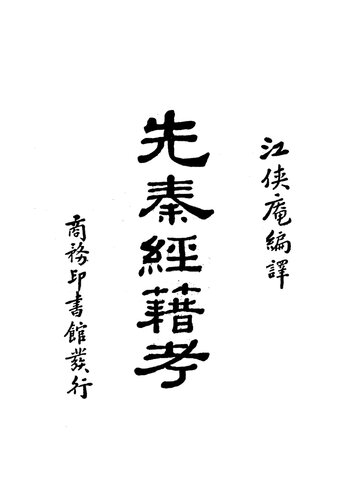 江俠庵編譯
先秦經藉考
商務印書館發行